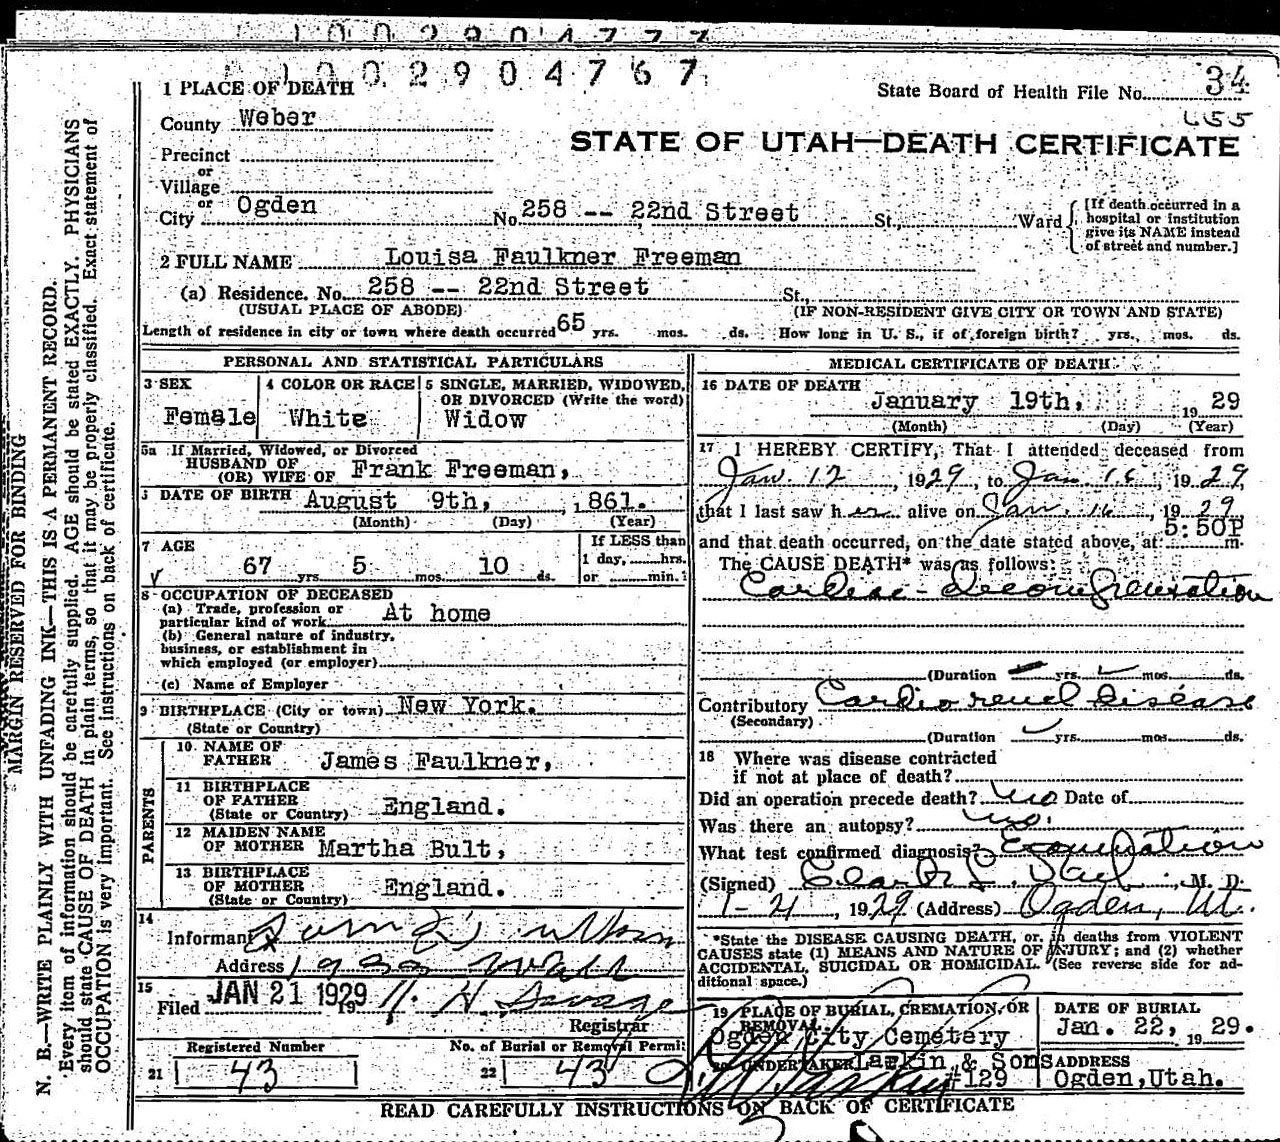 1002904777
1002904767
1 PLACE OF DEATH
State Board of Health File No. 34
655
County Weber
STATE OF UTAH—DEATH CERTIFICATE
Precinct
or
Village
or
City Ogden No. 258 -- 22nd Street St., Ward
[If death occurred in a
hospital or institution
give its NAME instead
of street and number.]
2 FULL NAME Louisa Faulkner Freeman
(a) Residence. No. 258 -- 22nd Street St.,
(USUAL PLACE OF ABODE) (IF NON-RESIDENT GIVE CITY OR TOWN AND STATE)
Length of residence in city or town where death occurred 65 yrs. mos. ds. How long in U. S., if of foreign birth? yrs., mos. ds.
PERSONAL AND STATISTICAL PARTICULARS
3 SEX
Female
4 COLOR OR RACE
White
5 SINGLE, MARRIED, WIDOWED,
OR DIVORCED (Write the word)
Widow
5a If Married, Widowed, or Divorced
HUSBAND OF
(OR) WIFE OF Frank Freeman,
DATE OF BIRTH August 9th, 1861.
(Month) (Day) (Year)
7 AGE
67 yrs 5 mos. 10 ds.
If LESS than
1 day, hrs.
or min.
8 OCCUPATION OF DECEASED
(a) Trade, profession or
particular kind of work At home
(b) General nature of industry,
business, or establishment in
which employed (or employer)
(c) Name of Employer
9 BIRTHPLACE (City or town) New York.
(State or Country)
PARENTS
10 NAME OF
FATHER James Faulkner,
11 BIRTHPLACE
OF FATHER
(State or Country) England.
12 MAIDEN NAME
OF MOTHER Martha Bult,
13 BIRTHPLACE
OF MOTHER
(State or Country) England.
14
Informant
Address Wall
15
Filed JAN 21 1929 19 H. Savage
Registrar
Registered Number
21 43
No. of Burial or Removal Permit
22 43
MEDICAL CERTIFICATE OF DEATH
16 DATE OF DEATH
January 19th, 1929
(Month) (Day) (Year)
17 I HEREBY CERTIFY, That I attended deceased from
Jan. 12, 1929, to Jan. 16, 1929,
that I last saw her alive on Jan. 16, 1929
5:50P
and that death occurred, on the date stated above, at m.
The CAUSE DEATH* was as follows:
Cardiac - decompensation
(Duration yrs. mos. ds.
Contributory Cardio renal disease
(Secondary)
(Duration yrs. mos. ds.
18 Where was disease contracted
if not at place of death?
Did an operation precede death? no Date of
Was there an autopsy? no.
What test confirmed diagnosis? Examination
(Signed) M. D.
1929 (Address) Ogden, Ut.
*State the DISEASE CAUSING DEATH, or, in deaths from VIOLENT
CAUSES state (1) MEANS AND NATURE OF INJURY; and (2) whether
ACCIDENTAL, SUICIDAL OR HOMICIDAL. (See reverse side for ad-
ditional space.)
19 PLACE OF BURIAL, CREMATION, OR
REMOVAL
Ogden City Cemetary
DATE OF BURIAL
Jan. 22, 1929.
20 UNDERTAKER Larkin & Sons
#129
ADDRESS
Ogden, Utah.
READ CAREFULLY INSTRUCTIONS ON BACK OF CERTIFICATE
MARGIN RESERVED FOR BINDING
N. B.—WRITE PLAINLY WITH UNFADING INK—THIS IS A PERMANENT RECORD.
Every item of information should be carefully supplied. AGE should be stated EXACTLY. PHYSICIANS
should state CAUSE OF DEATH in plain terms, so that it may be properly classified. Exact statement of
OCCUPATION is very important. See instructions on back of certificate.